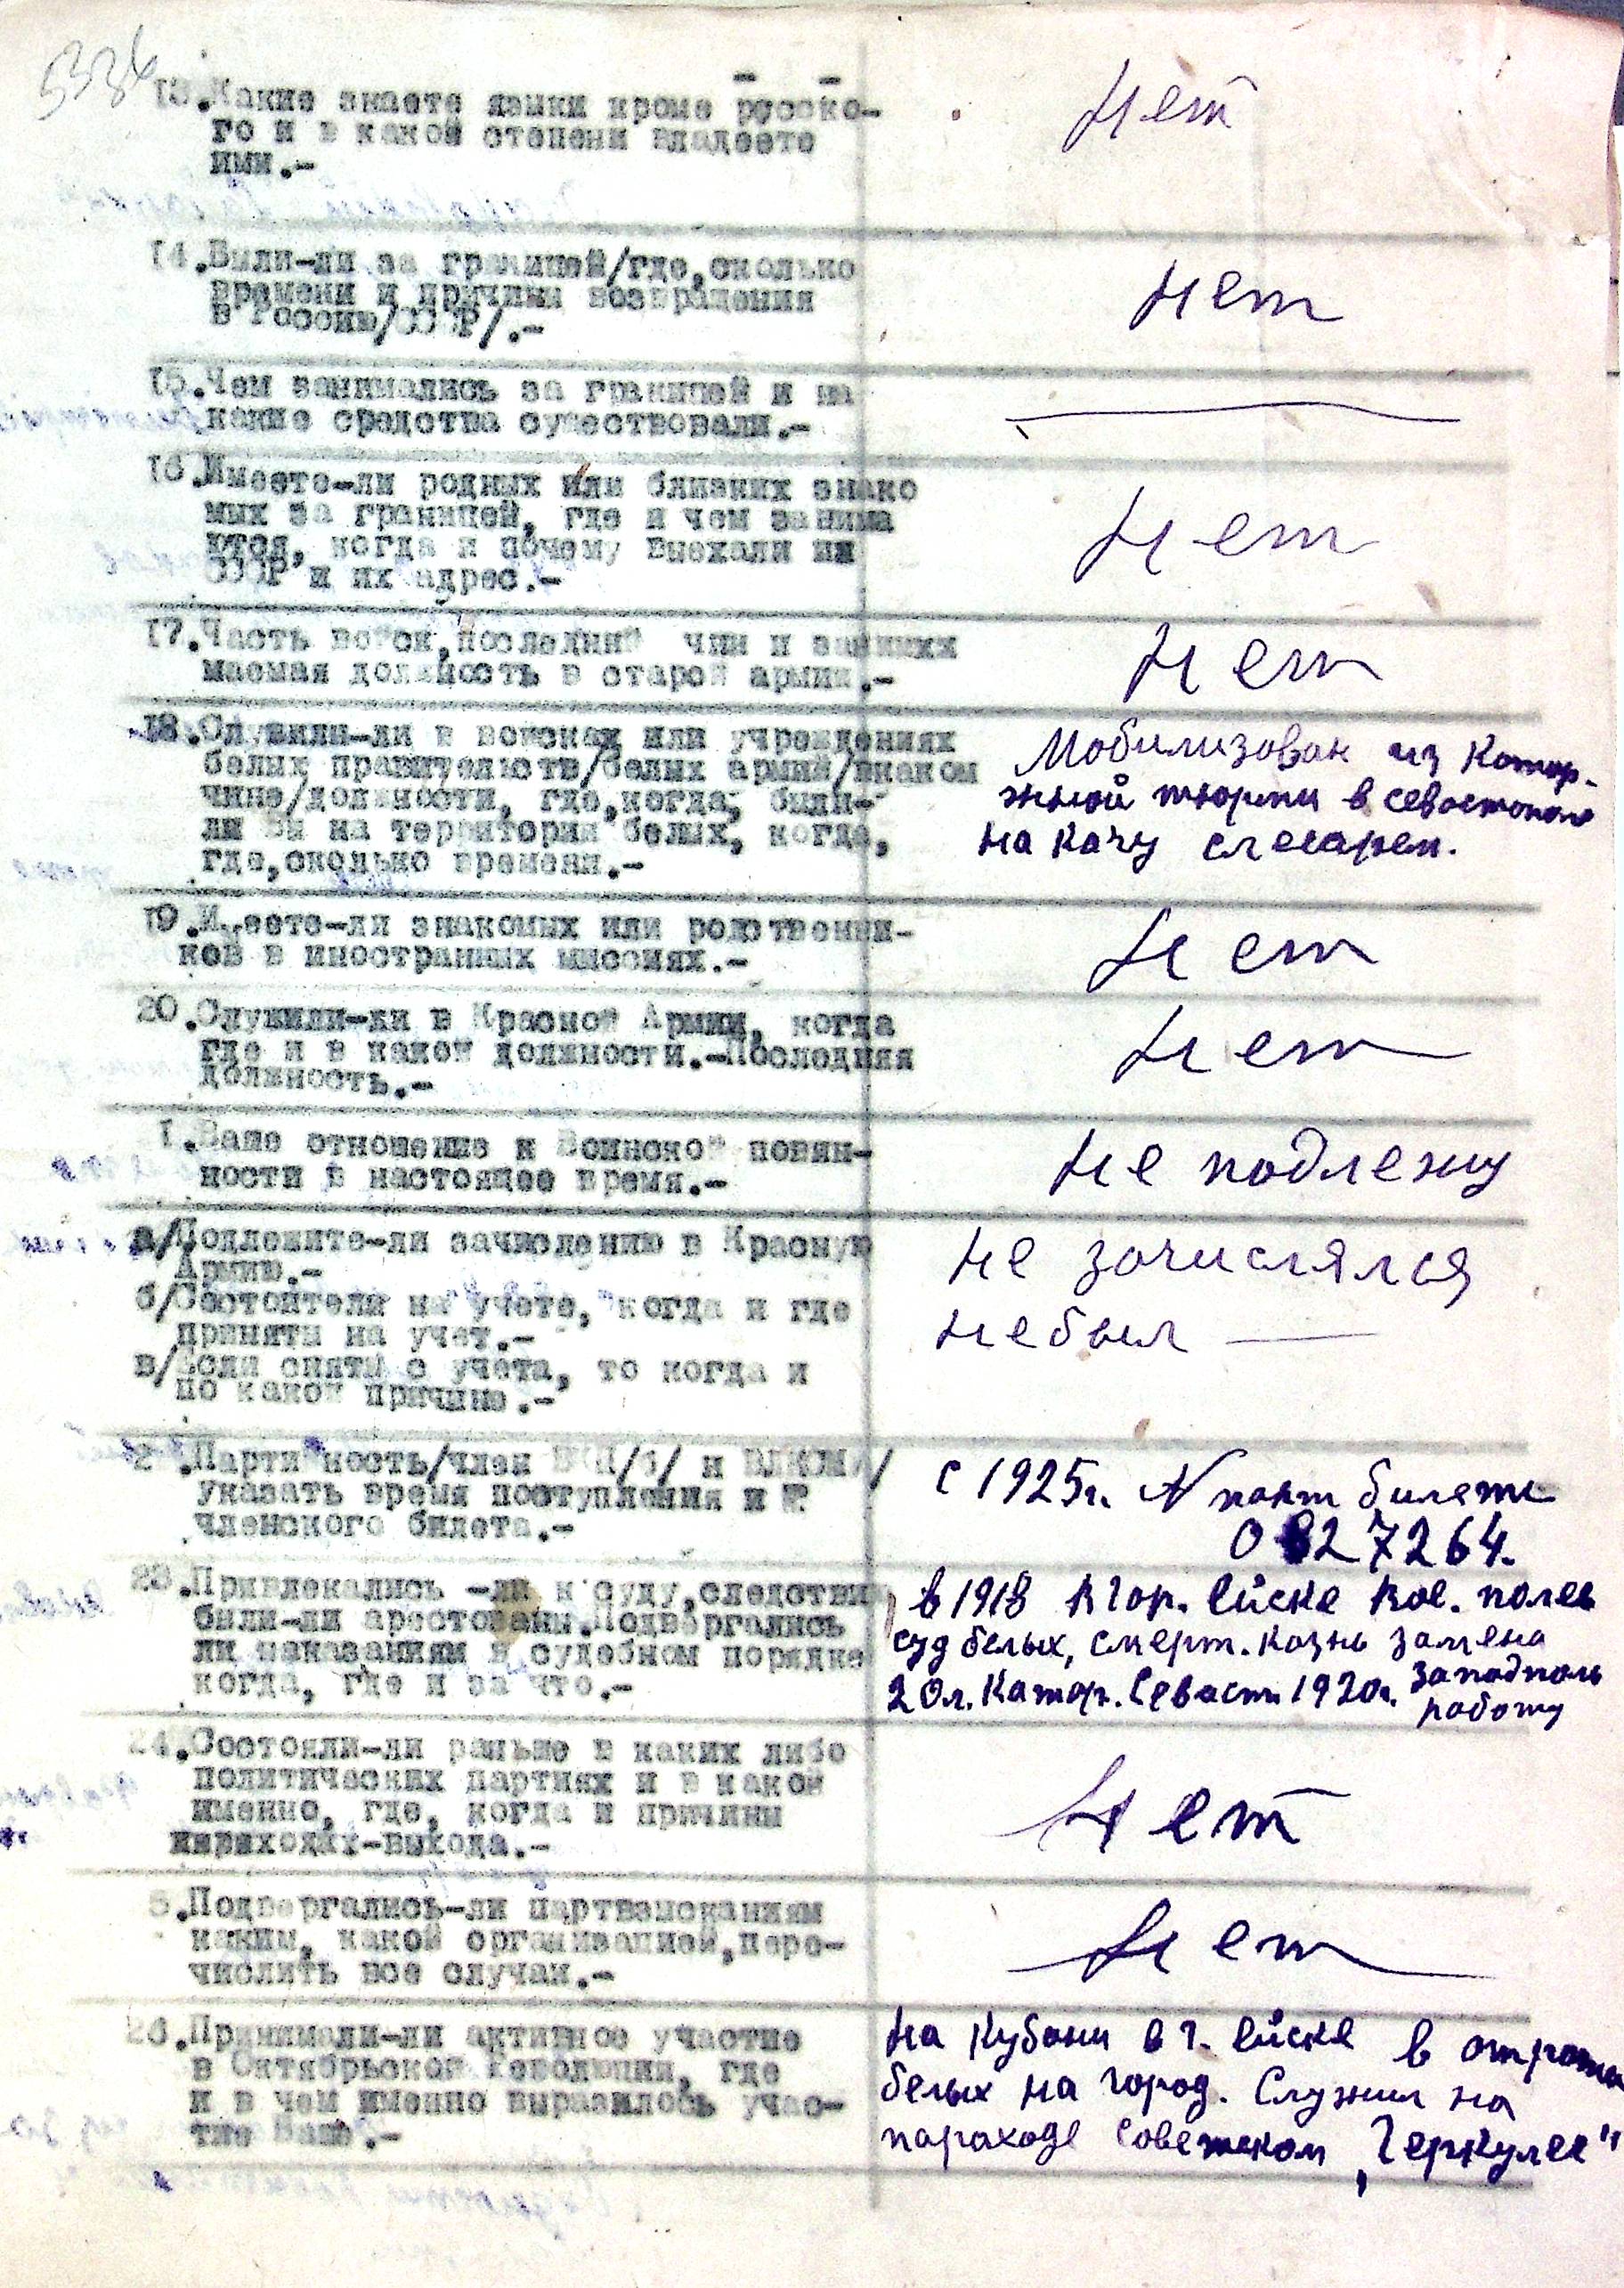 13.Какие знаете языки кроме русско-
го и в какой степени владеете
ими.-
Нет
14.Были-ли за границей/где,сколько
времени и причины возвращения
в Россию/СССР/.-
Нет
15.Чем занимались за границей и на
какие средства существовали.-
16.Имеете-ли родных или близких знако
мых за границей, где и чем занима
ются, когда и почему выехали из
СССР и их адрес.-
Нет
17.Часть войск,последний чин и занима
маемая должность в старой армии.-
Нет
18.Служили-ли в войсках или учреждениях
белых правительств/белых армий/в каком
чине/должности, где,когда, были-
ли Вы на территории белых, когда,
где,сколько времени.-
Мобилизован из катор-
жной тюрми в севастополе
на Качу слесарем.
19.Имеете-ли знакомых или родственни-
ков в иностранных миссиях.-
Нет
20.Служили-ли в Красной Армии, когда
где и в какой должности.-Последняя
должность.-
Нет
1.Ваше отношение к Воинской повин-
ности в настоящее время.-
Не подлежу
а/Подлежите-ли зачислению в Красную
Армию.-
не зачислялся
б/Состоители на учете, когда и где
приняты на учет.-
небыл
в/Если сняты с учета, то когда и
по какой причине.-
2 .Партийность/член ВКП/б/ и ВЛКСМ/
указать время поступления и №
членского билета.-
с 1925г. N парт билета
0827264.
23.Привлекались -ли к суду,следствию
были-ли арестованы.Подвергались
ли наказаниям в судебном порядке
когда, где и за что.-
в 1918 в гор. Ейске вое. полев
суд белых, смерт. казнь замена
20л. катор. Севаст. 1920г. за подполь
работу
24.Состояли-ли раньше в каких либо
политических партиях и в какой
именно, где, когда и причины
перехода-выхода.-
Нет
5.Подвергались-ли партвзысканиям
каким, какой организацией,пере-
числить все случаи.-
Нет
26.Принимали-ли активное участие
в Октябрьской Революции, где
и в чем именно выразилось учас-
тие Ваше.-
На Кубани в г. Ейске в
белых на город. Служил на
пароходе советском „Геркулес"